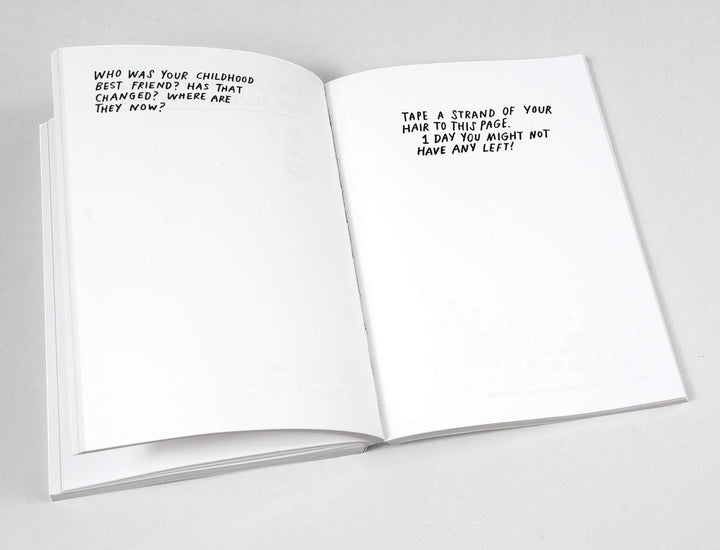 WHO WAS YOUR CHILDHOOD
BEST FRIEND? HAS THAT
CHANGED? WHERE ARE
THEY NOW?
TAPE A STRAND OF YOUR
HAIR TO THIS PAGE.
1 DAY YOU MIGHT NOT
HAVE ANY LEFT!